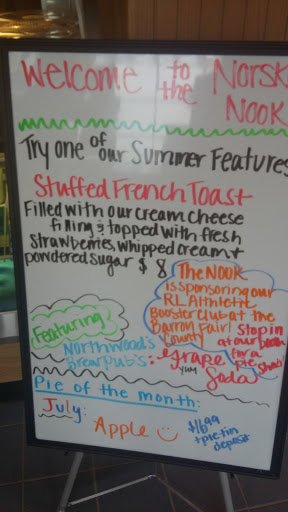 Welcome to the Norsk Nook
Try one of our Summer Features
Stuffed French Toast
Filled with our cream cheese
filling & topped with fresh
strawberries, whipped cream +
powdered sugar $8
The NOOK
is sponsoring our
RL Athletic
Booster Club at the
Barron Fair!
County
Stop in
at our booth
for a
pie shake
Featuring
Northwoods
Brew Pub's:
Grape
yum
Soda
Pie of the month:
July:
Apple
$16.99
+ pie tin
deposit